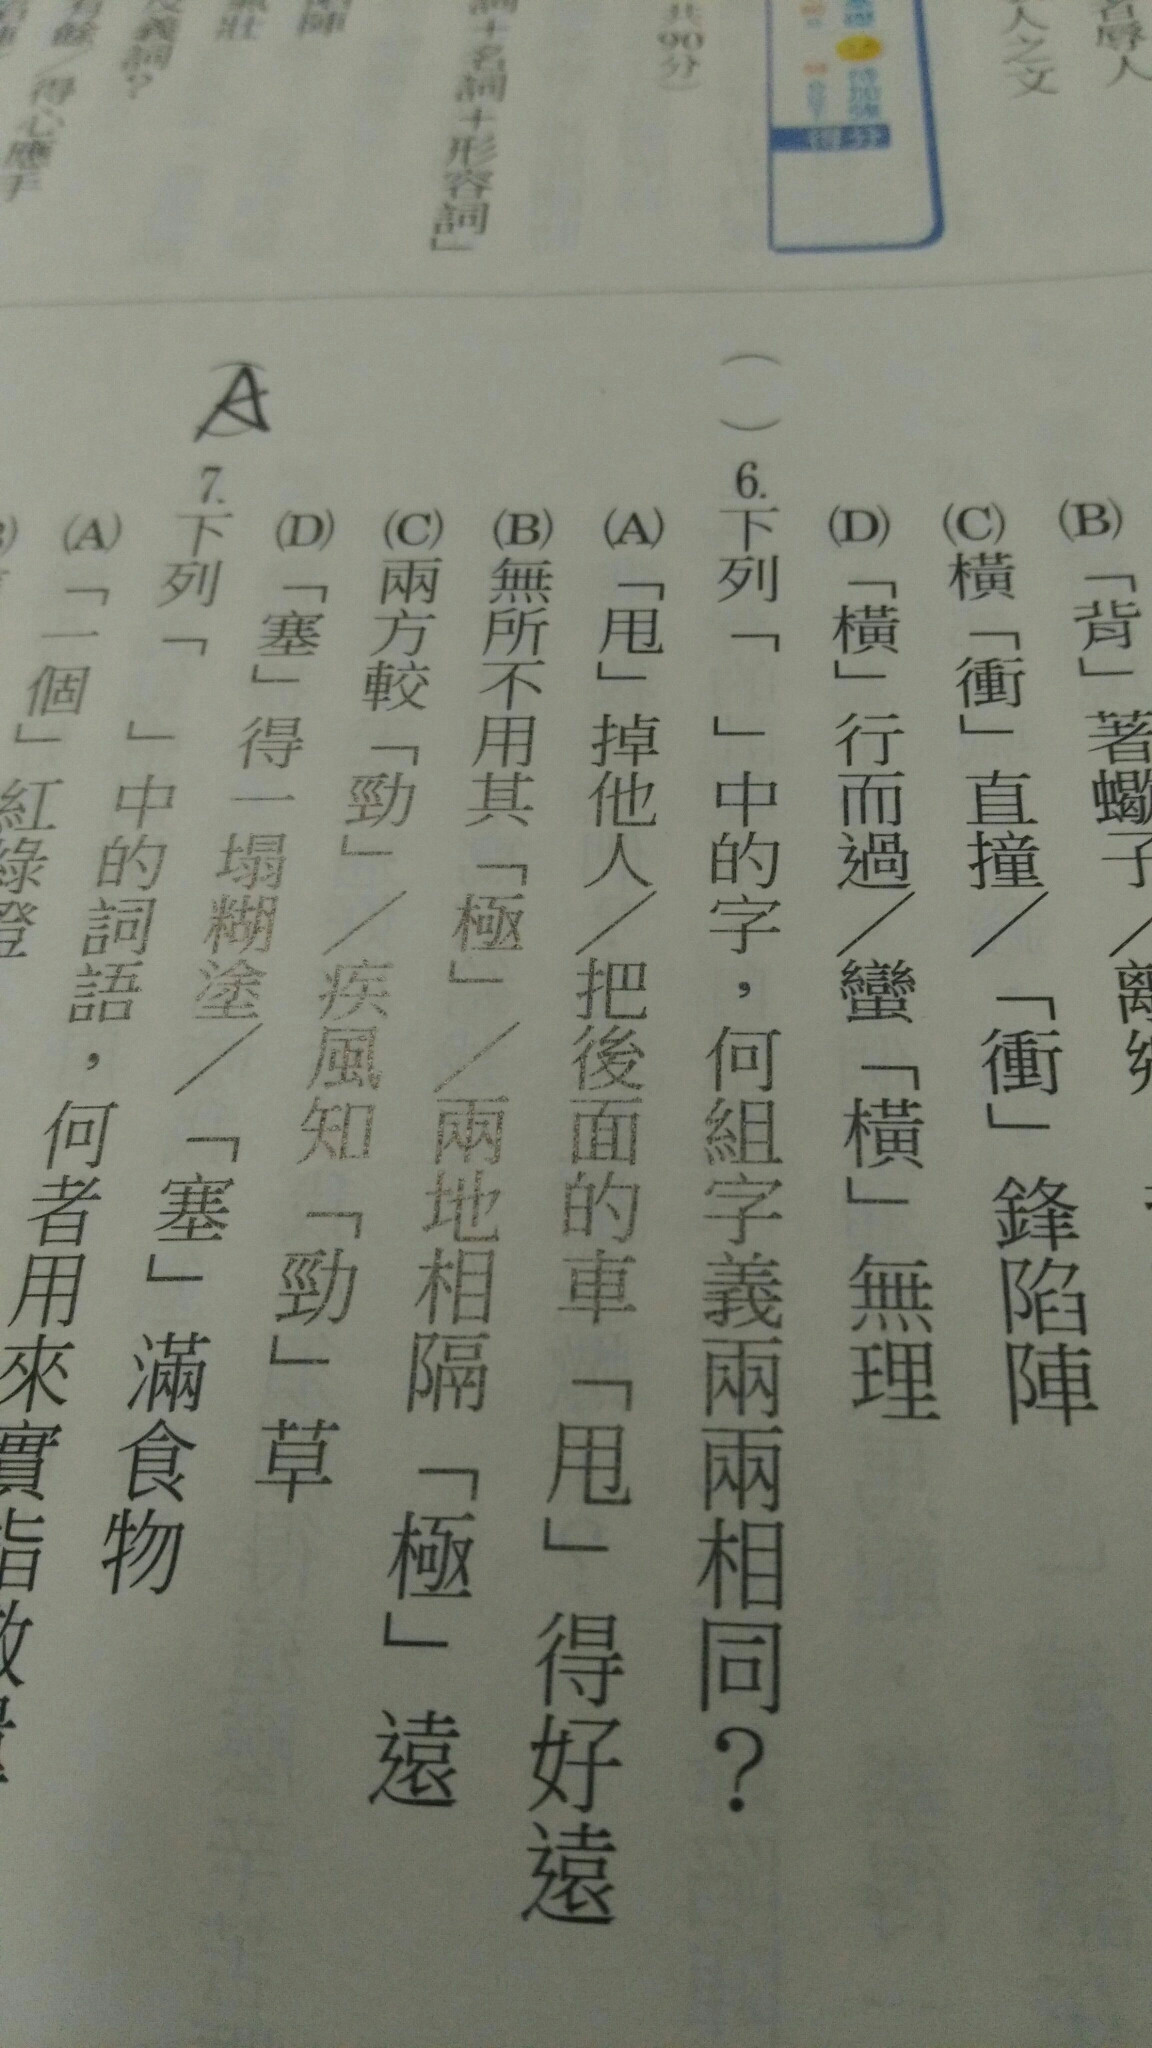 人之文
得分
共90分)
詞+名詞+形容詞」
得心應手
(B)「背」著蠍子/離鄉
(C)橫「衝」直撞/「衝」鋒陷陣
(D)「橫」行而過/蠻「橫」無理
( )6.下列「 」中的字,何組字義兩兩相同?
(A)「甩」掉他人/把後面的車「甩」得好遠
(B)無所不用其「極」/兩地相隔「極」遠
(C)兩方較「勁」/疾風知「勁」草
(D)「塞」得一塌糊塗/「塞」滿食物
(A)7.下列「 」中的詞語,何者用來實指數量
(A)「一個」紅綠燈